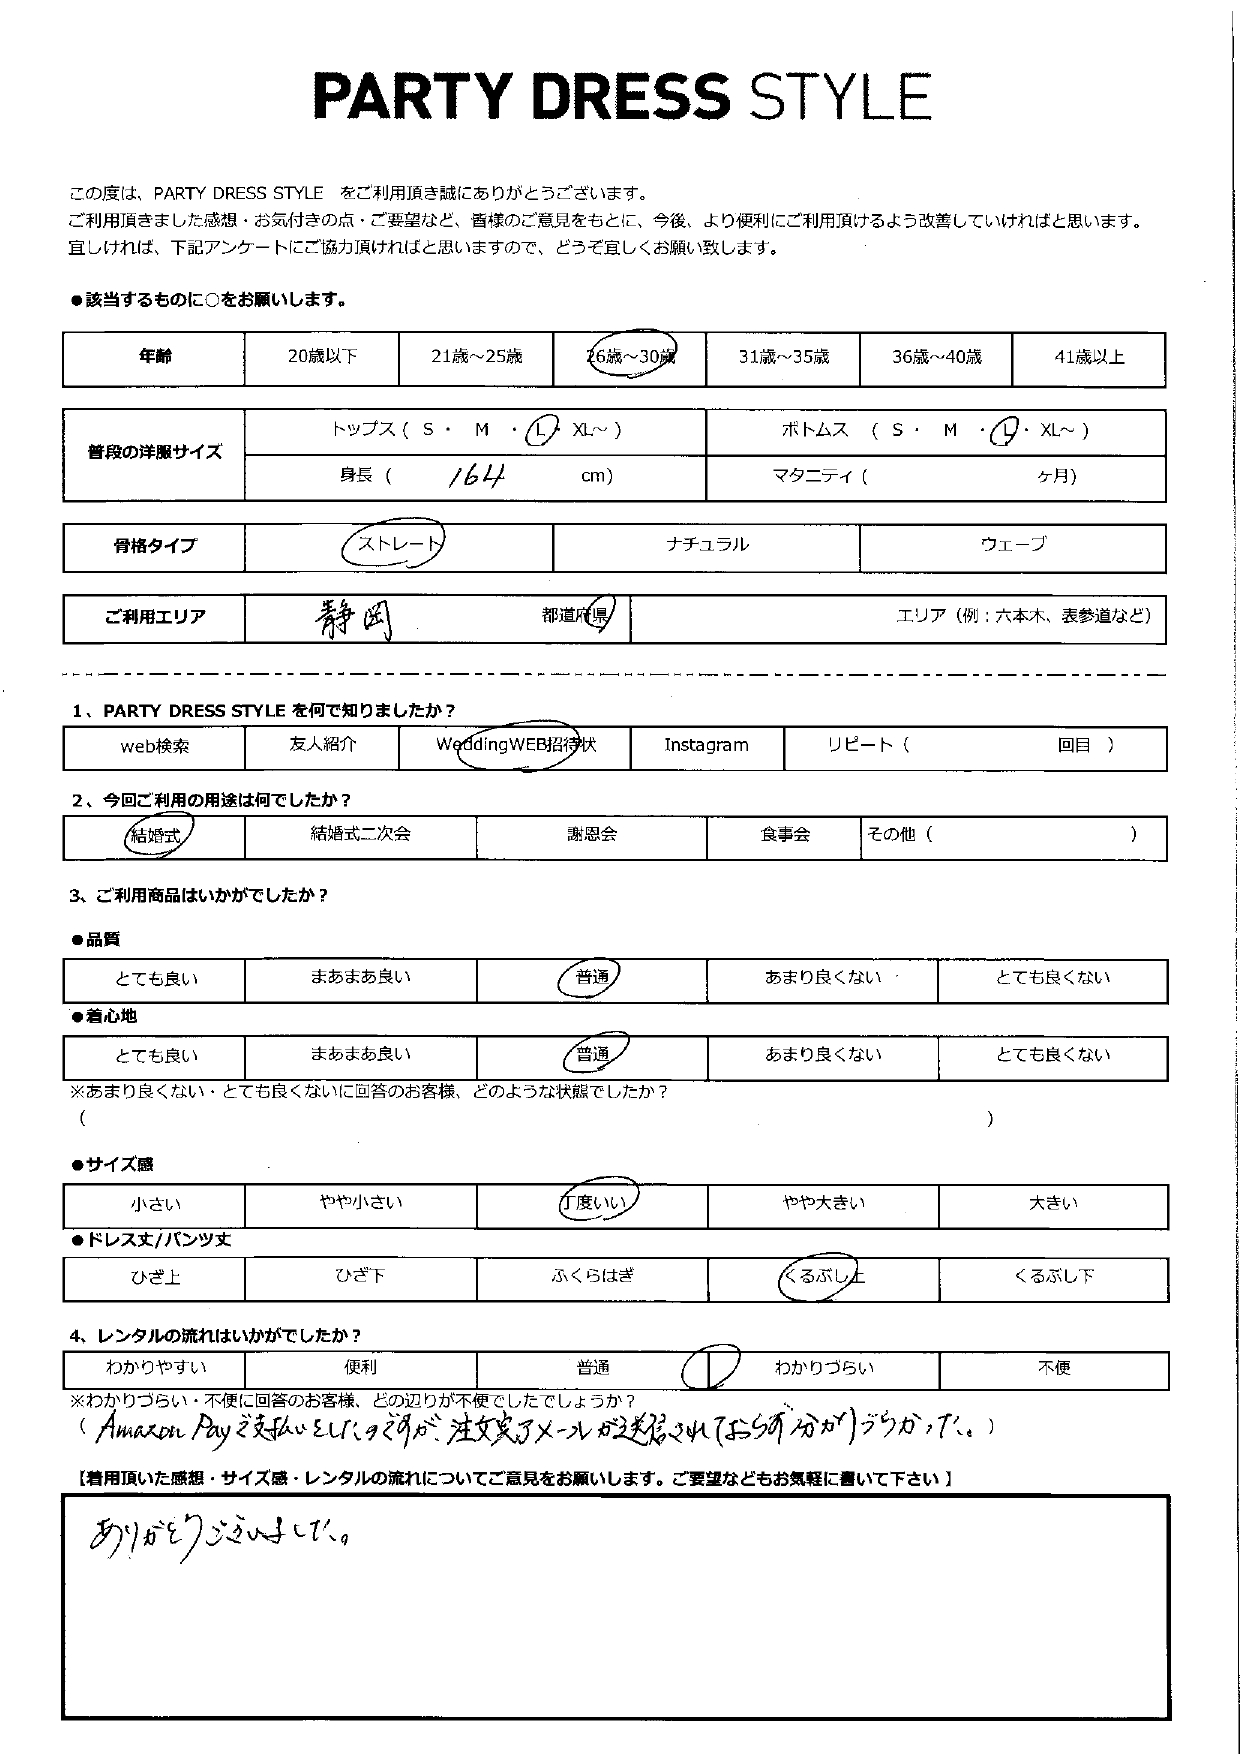 PARTY DRESS STYLE
この度は、PARTY DRESS STYLE をご利用頂き誠にありがとうございます。
ご利用頂きました感想・お気付きの点・ご要望など、皆様のご意見をもとに、今後、より便利にご利用頂けるよう改善していければと思います。
宜しければ、下記アンケートにご協力頂ければと思いますので、どうぞ宜しくお願い致します。
●該当するものに○をお願いします。
年齢 20歳以下 21歳～25歳 26歳～30歳 31歳～35歳 36歳～40歳 41歳以上
普段の洋服サイズ トップス ( S ・ M ・ L ・ XL～ ) ボトムス ( S ・ M ・ L ・ XL～ )
身長 ( 164 cm) マタニティ ( ヶ月)
骨格タイプ ストレート ナチュラル ウェーブ
ご利用エリア 静岡 都道府県 エリア（例：六本木、表参道など）
1、PARTY DRESS STYLE を何で知りましたか？
web検索 友人紹介 WeddingWEB招待状 Instagram リピート（ 回目 ）
2、今回ご利用の用途は何でしたか？
結婚式 結婚式二次会 謝恩会 食事会 その他（ ）
3、ご利用商品はいかがでしたか？
●品質
とても良い まあまあ良い 普通 あまり良くない とても良くない
●着心地
とても良い まあまあ良い 普通 あまり良くない とても良くない
※あまり良くない・とても良くないに回答のお客様、どのような状態でしたか？
（ ）
●サイズ感
小さい やや小さい 丁度いい やや大きい 大きい
●ドレス丈/パンツ丈
ひざ上 ひざ下 ふくらはぎ くるぶし上 くるぶし下
4、レンタルの流れはいかがでしたか？
わかりやすい 便利 普通 わかりづらい 不便
※わかりづらい・不便に回答のお客様、どの辺りが不便でしたでしょうか？
（ Amazon Payで支払いをしたのですが、注文完了メールが送信されておらず分かりづらかった。）
【着用頂いた感想・サイズ感・レンタルの流れについてご意見をお願いします。ご要望などもお気軽に書いて下さい 】
ありがとうございました。